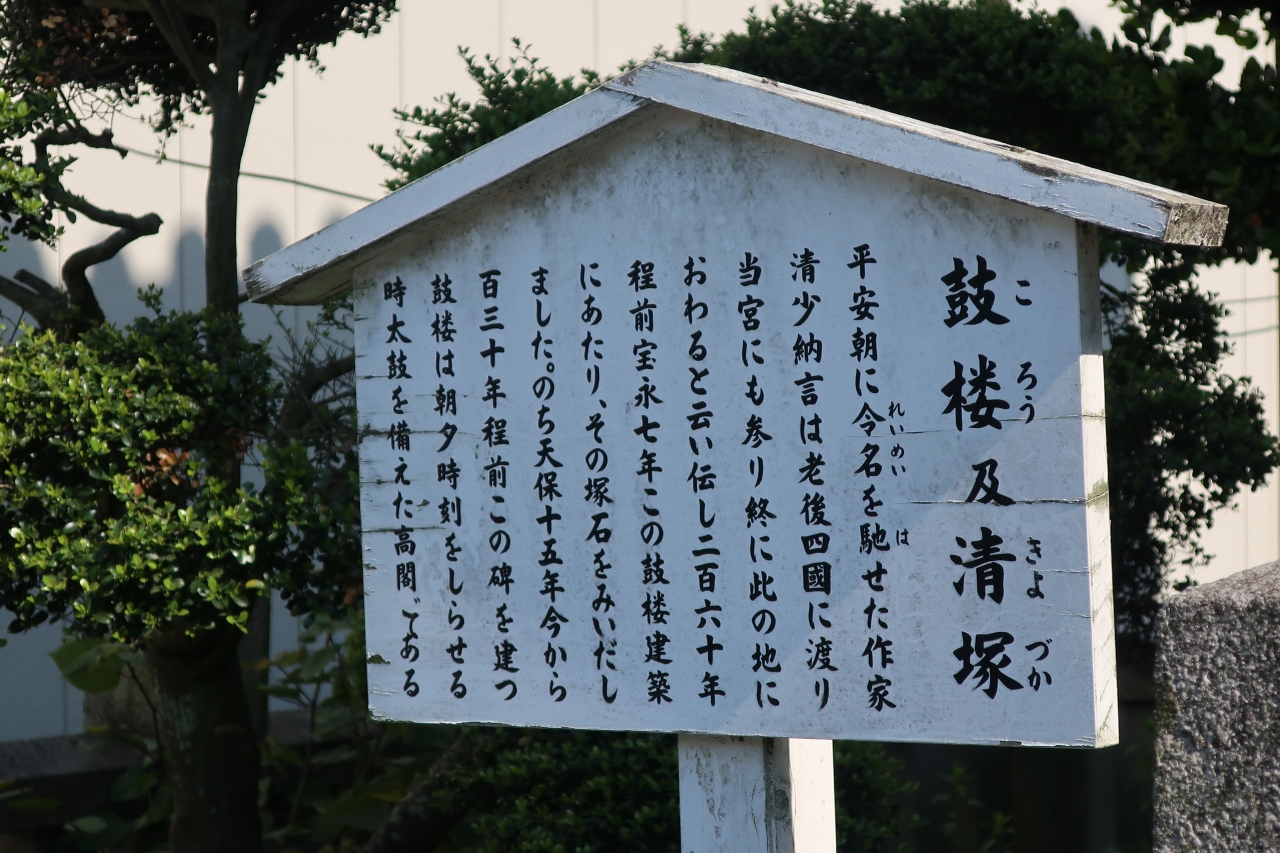 鼓楼及清塚
ころうきよづか
平安朝に令名を馳せた作家
れいめいは
清少納言は老後四國に渡り
当宮にも参り終に此の地に
おわると云い伝し二百六十年
程前宝永七年この鼓楼建築
にあたり、その塚石をみいだし
ました。のち天保十五年今から
百三十年程前この碑を建つ
鼓楼は朝夕時刻をしらせる
時太鼓を備えた高閣である